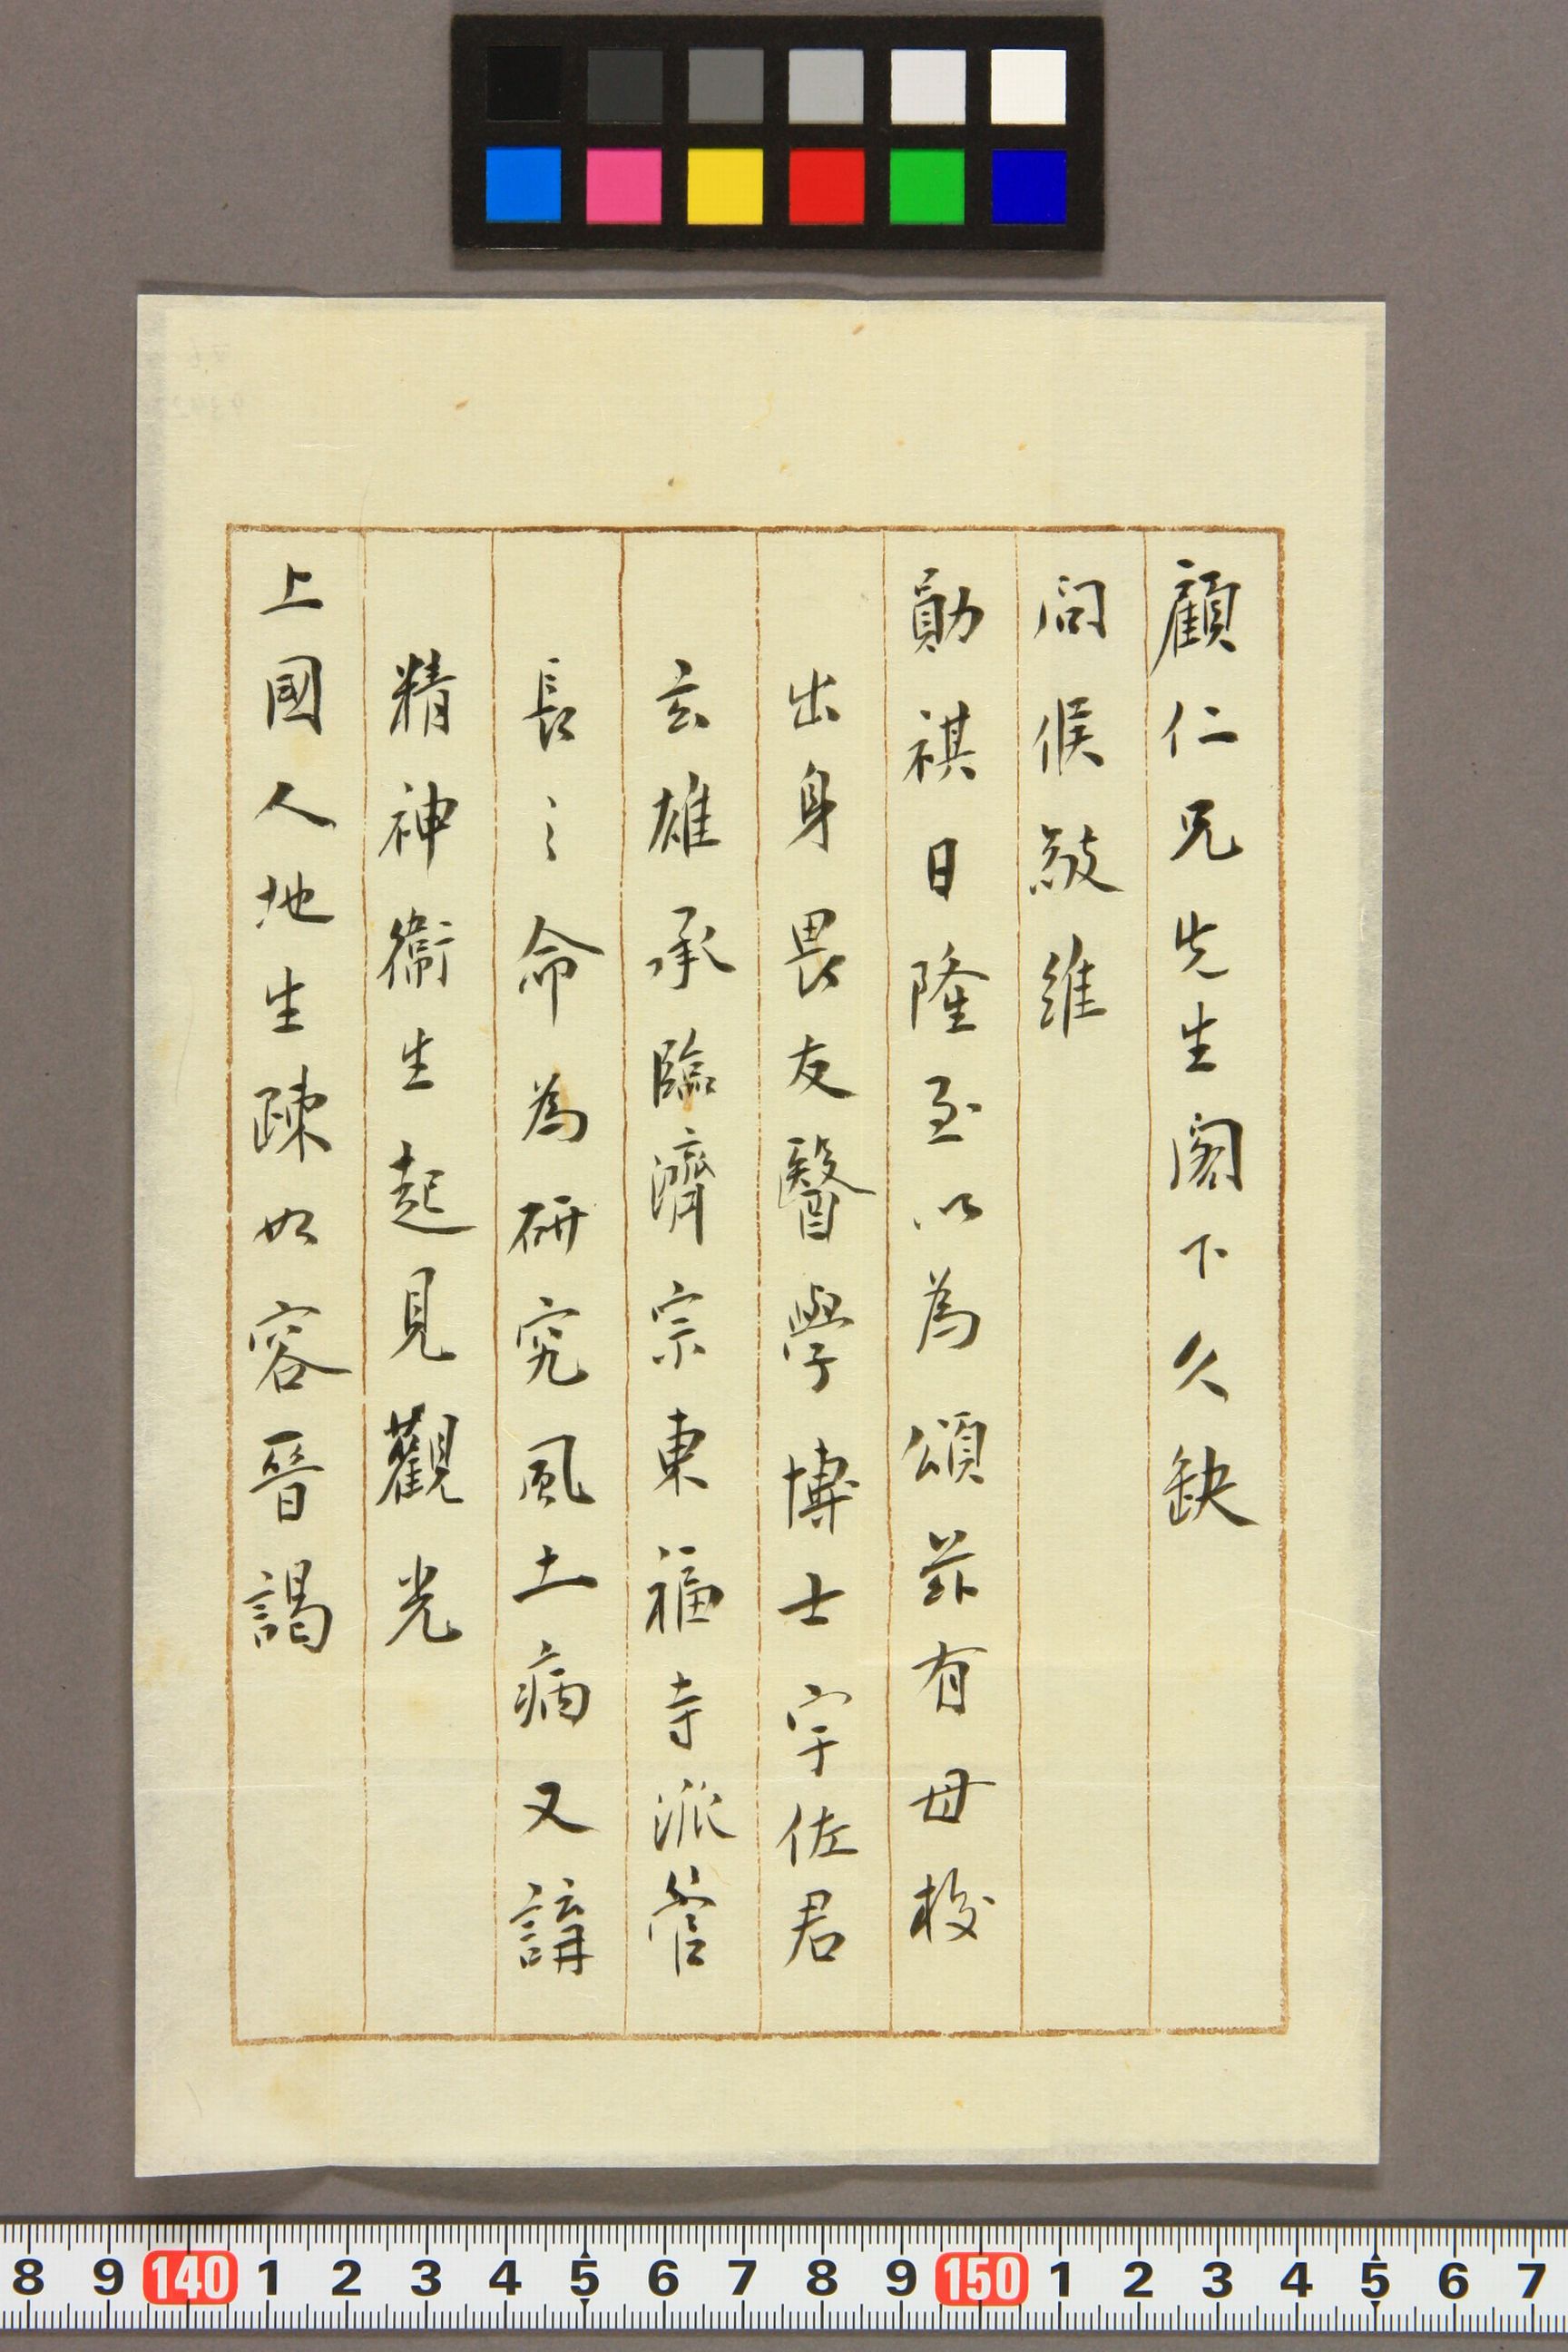 顧仁兄先生閣下久缺
問候敬維
勛祺日隆至以為頌茲有母校
出身畏友醫學博士宇佐君
玄雄承臨濟宗東福寺派管
長之命為研究風土病又講
精神衛生起見觀光
上國人地生疎如容晉謁
8 9 140 1 2 3 4 5 6 7 8 9 150 1 2 3 4 5 6 7